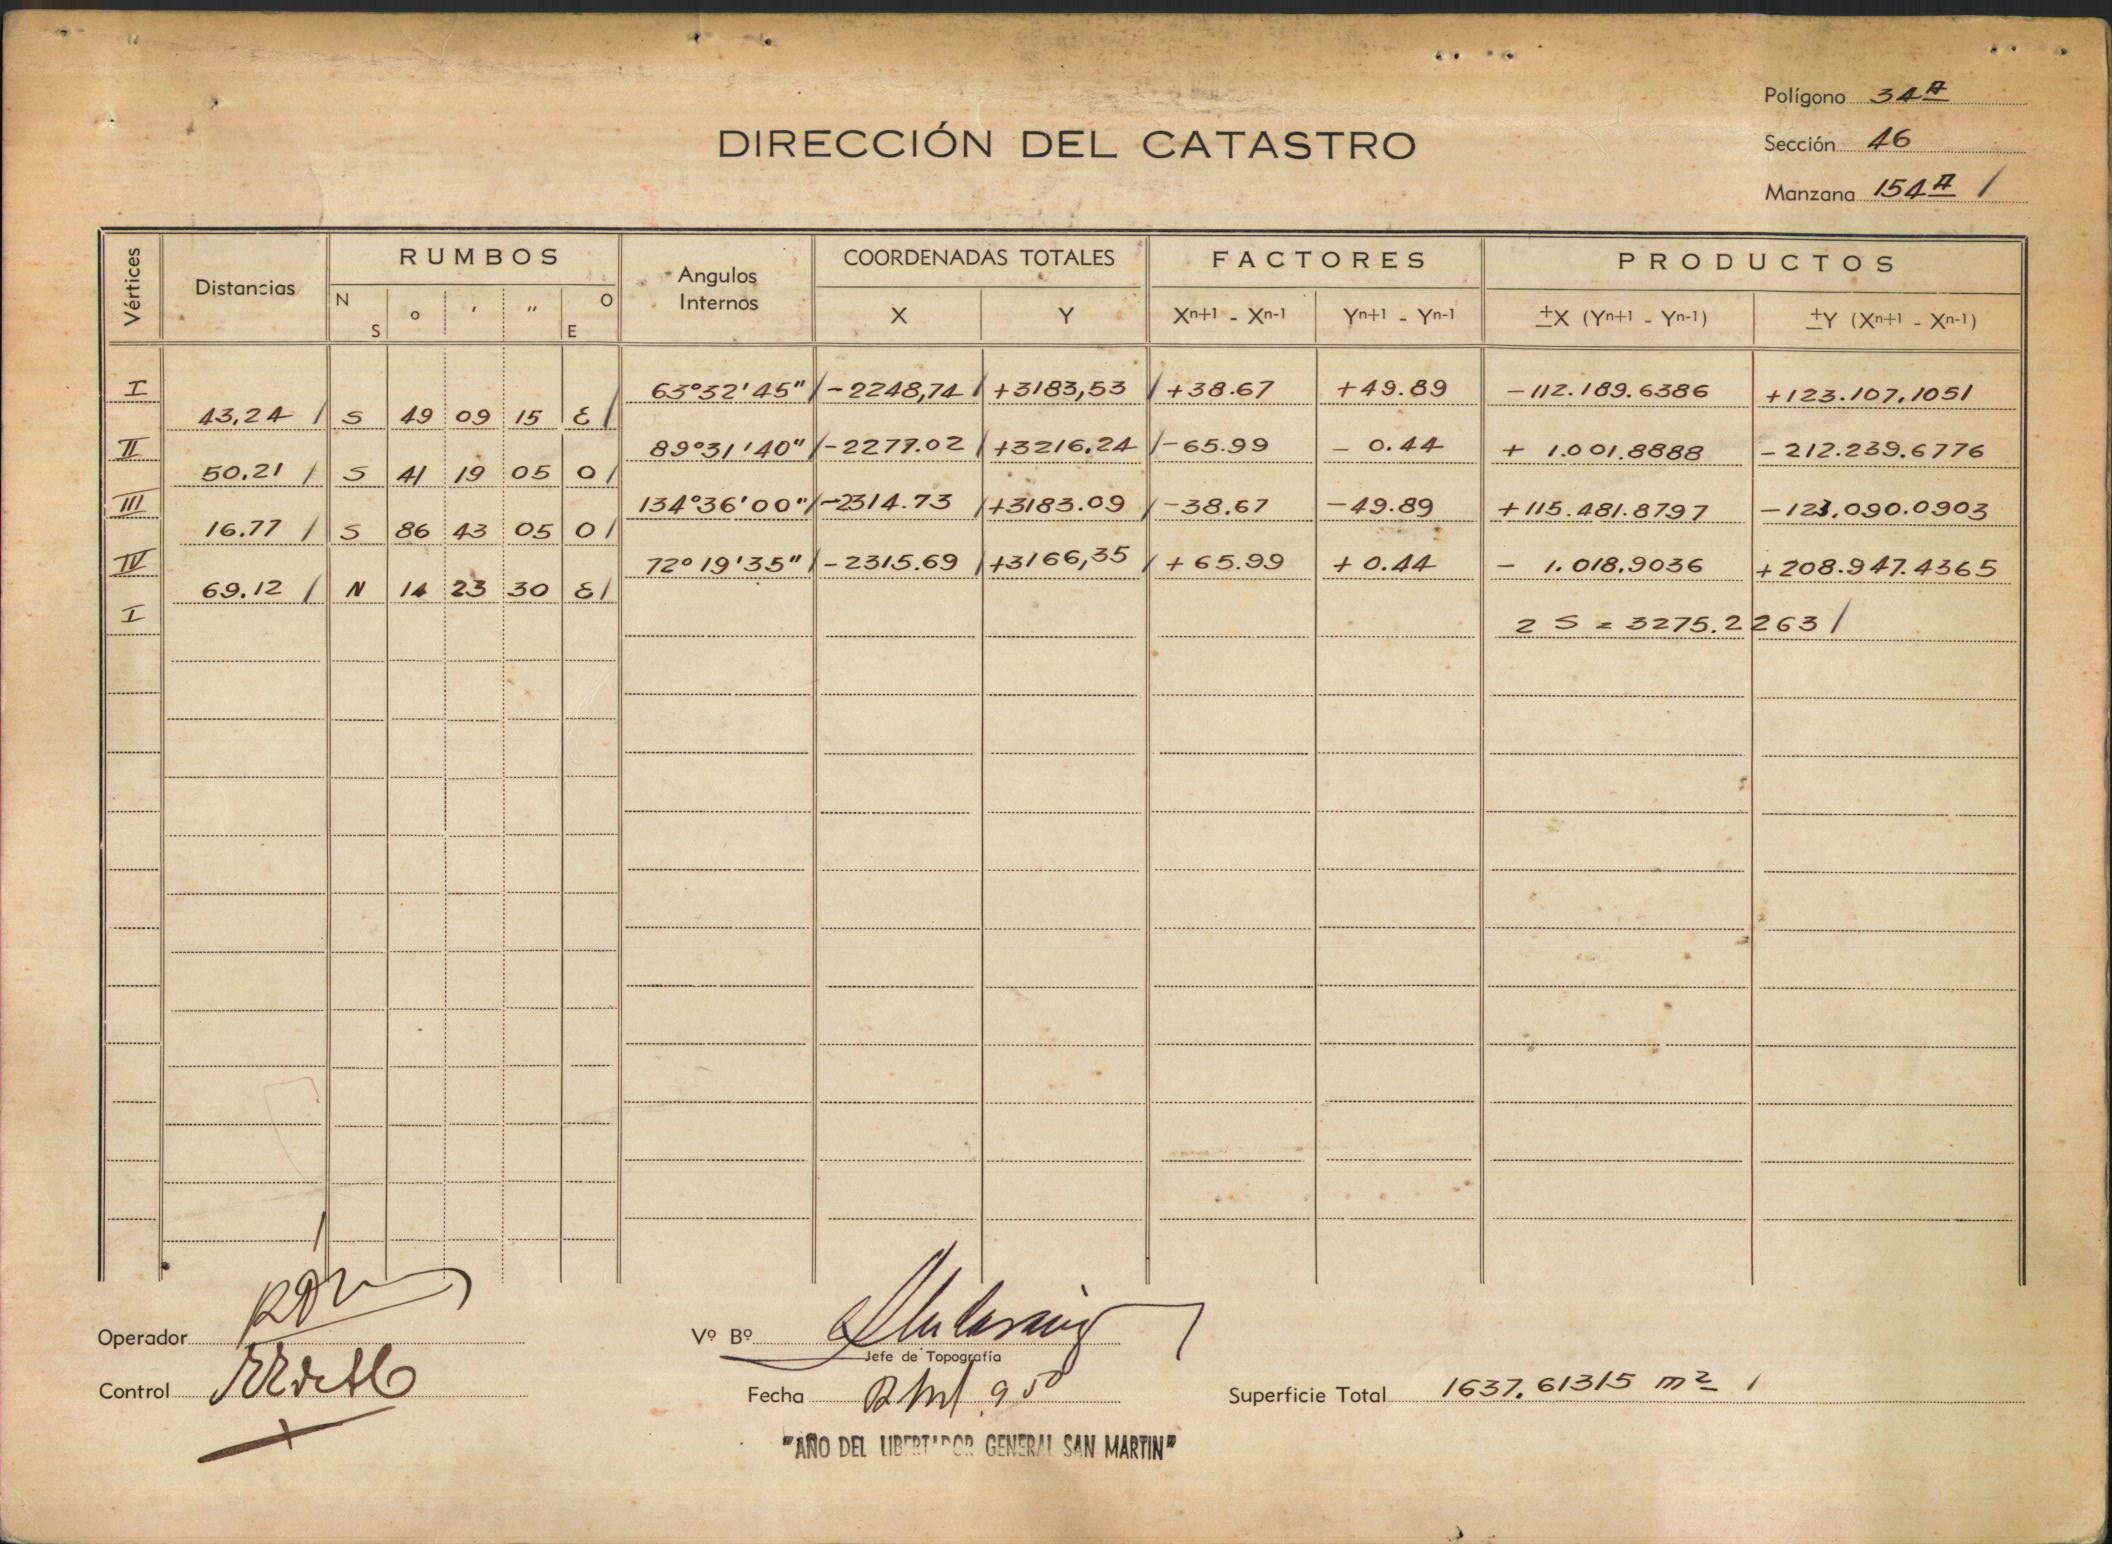 Polígono 34A
DIRECCIÓN DEL CATASTRO
Sección 46
Manzana 154A /
Vértices Distancias RUMBOS Angulos Internos COORDENADAS TOTALES FACTORES PRODUCTOS
N S ° ' " O E X Y Xn+1 - Xn-1 Yn+1 - Yn-1 ±X (Yn+1 - Yn-1) ±Y (Xn+1 - Xn-1)
I 63°32'45" / -2248,74 / +3183,53 / +38.67 +49.89 -112.189.6386 +123.107.1051
43,24 / S 49 09 15 E /
II 89°31'40" / -2277.02 / +3216.24 / -65.99 - 0.44 + 1.001.8888 -212.239.6776
50.21 / S 41 19 05 O /
III 134°36'00" / -2314.73 / +3183.09 / -38.67 -49.89 +115.481.8797 -123.090.0903
16.77 / S 86 43 05 O /
IV 72°19'35" / -2315.69 / +3166,35 / +65.99 +0.44 - 1.018.9036 +208.947.4365
69.12 / N 14 23 30 E /
I 2 S = 3275.2263 /
Operador
Vº Bº
Jefe de Topografía
Control
Fecha
Superficie Total 1637.61315 m2 /
"AÑO DEL LIBERTADOR GENERAL SAN MARTIN"